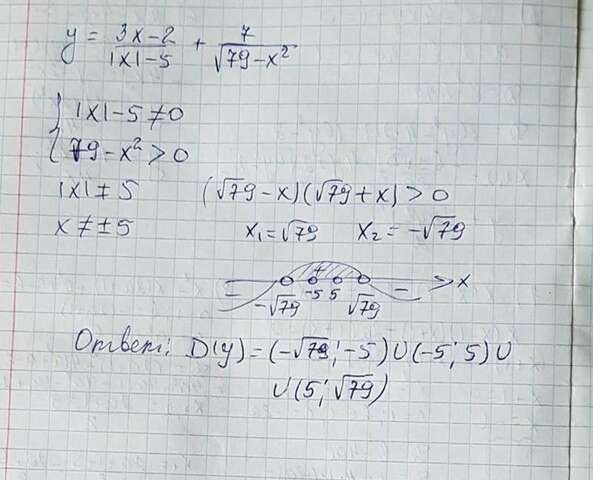 y = (3x-2)/(|x|-5) + 7/√(79-x²)
{ |x|-5≠0
79-x²>0
|x|≠5 (√79-x)(√79+x)>0
x≠±5 x₁=√79 x₂=-√79
- + - x
-√79 -5 5 √79
Ответ: D(y)=(-√79;-5)∪(-5;5)∪
∪(5;√79)